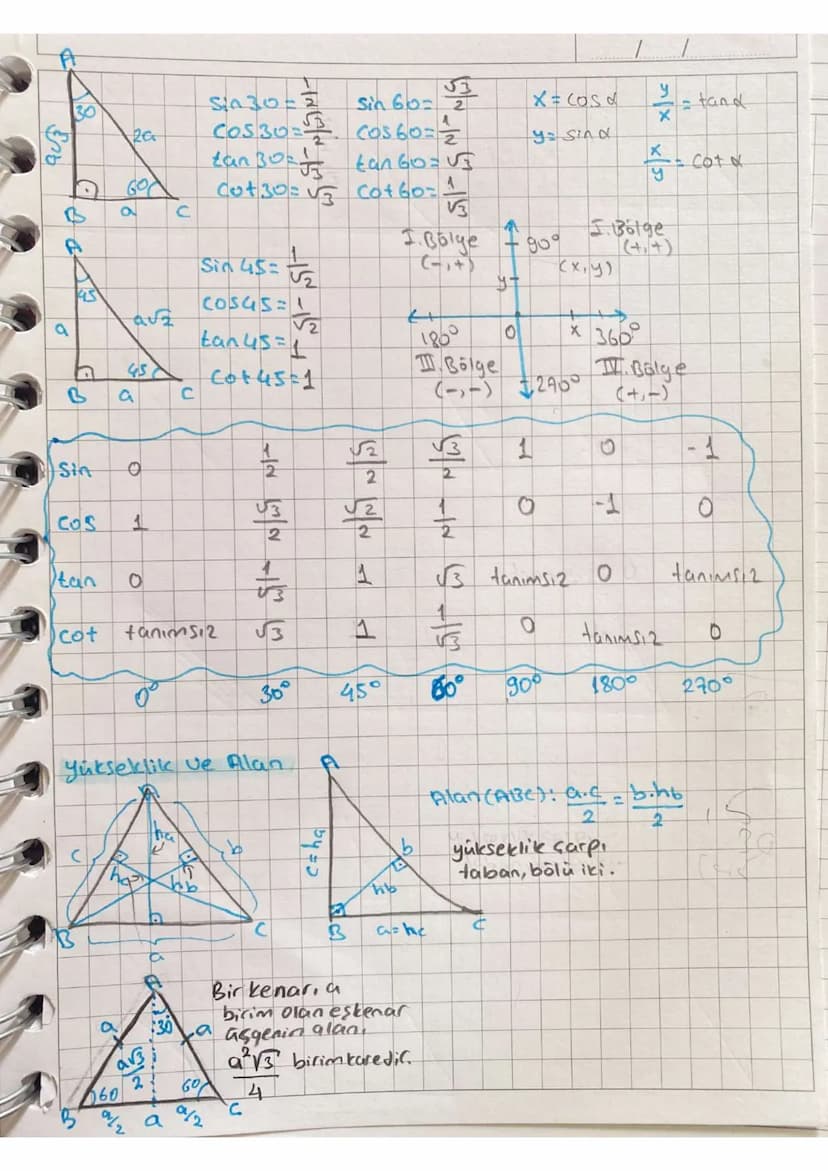 / /
A
30
a√3
2a
60
B a C
sin30=1/2 sin60=√3/2 x=cosα y/x=tanα
cos30=√3/2 cos60=1/2 y=sinα
tan30=1/√3 tan60=√3 x/y=cotα
cot30=√3 cot60=1/√3
A
45
a
a√2
45
B a C
sin45=1/√2
cos45=1/√2
tan45=1
cot45=1
I.Bölge 90° I.Bölge
(-,+) (+,+)
y (x,y)
180° 0 x 360°
III.Bölge 270° IV.Bölge
(-,-) (+,-)
sin 0 1/2 √2/2 √3/2 1 0 -1
cos 1 √3/2 √2/2 1/2 0 -1 0
tan 0 1/√3 1 √3 tanımsız 0 tanımsız
cot tanımsız √3 1 1/√3 0 tanımsız 0
0° 30° 45° 60° 90° 180° 270°
Yükseklik ve Alan
A
c ha b
hb
B C
a
A
c=ha
b
hb
B a=hc C
Alan(ABC): a.c/2 = b.hb/2
yükseklik çarpı
taban, bölü iki.
A
a 30 a
a√3/2
60 60
B a/2 a a/2 C
Bir kenarı a
birim olan eşkenar
üçgenin alanı
a²√3/4 birimkaredir.